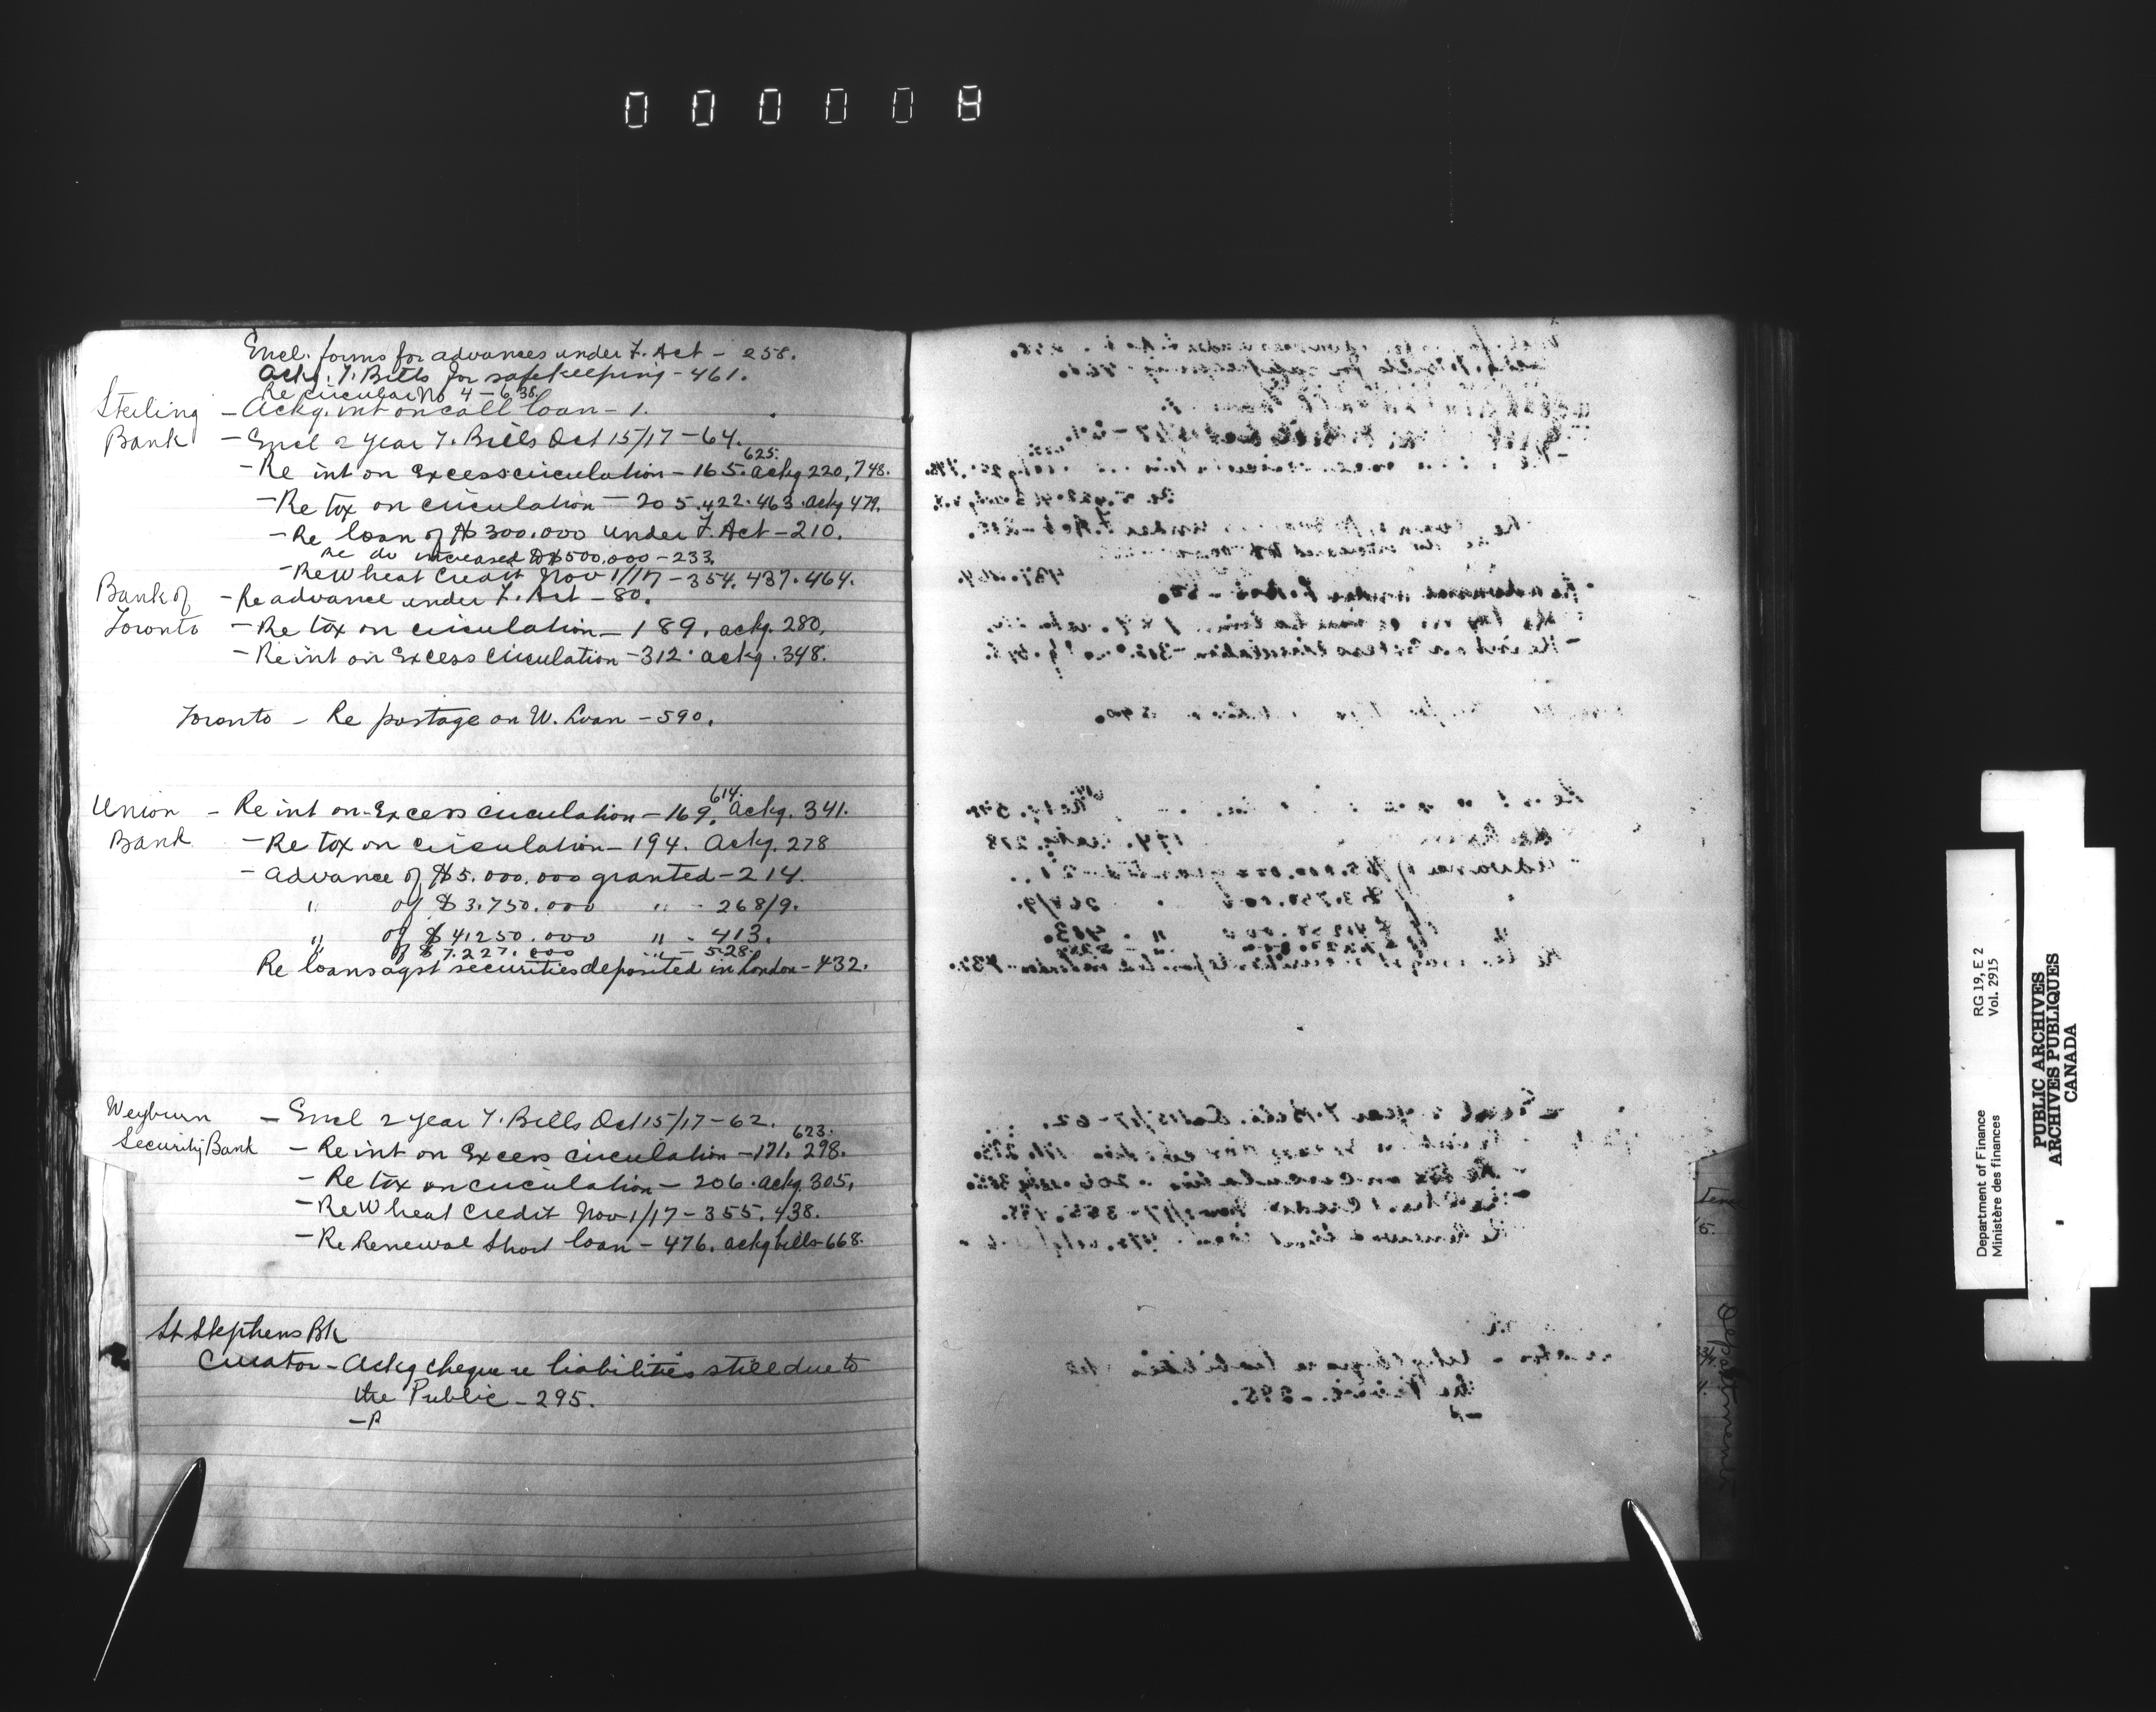 000008
Encl. forms for advances under F. Act - 258.
Ackg. T. Bills for safekeeping - 461.
Re circular No 4 - 638.
Sterling - Ackg. int on call loan - 1.
Bank - Encl 2 year T. Bills Oct 15/17 - 64.
625.
- Re int on Excess circulation - 165. ackg 220, 748.
- Re tax on circulation - 205. 422. 463. ackg 479.
- Re loan of $300.000 under F. Act - 210.
Re do increased to $500.000 - 233.
- Re Wheat Credit Nov 1/17 - 354. 437. 464.
Bank of - Re advance under F. Act - 80.
Toronto - Re tax on circulation - 189. ackg. 280.
- Re int on Excess circulation - 312. ackg. 348.
Toronto - Re postage on W. Loan - 590.
614.
Union - Re int on Excess circulation - 169. Ackg. 341.
Bank - Re tax on circulation - 194. Ackg. 278
- Advance of $5.000.000 granted - 214.
" of $3.750.000 " - 268/9.
" of $41250.000 " - 413.
of $7.227.000 " - 528.
Re loans agst securities deposited in London - 432.
Weyburn - Encl 2 year T. Bills Oct 15/17 - 62.
623.
Security Bank - Re int on Excess circulation - 171. 298.
- Re tax on circulation - 206. ackg. 305.
- Re Wheat Credit Nov 1/17 - 355. 438.
- Re Renewal Short loan - 476. ackg bills - 668.
St Stephens Bk
Curator - Ackg cheque re liabilities still due to
the Public - 295.
- P
Department of Finance RG 19, E 2
Ministère des finances Vol. 2915
PUBLIC ARCHIVES
ARCHIVES PUBLIQUES
CANADA